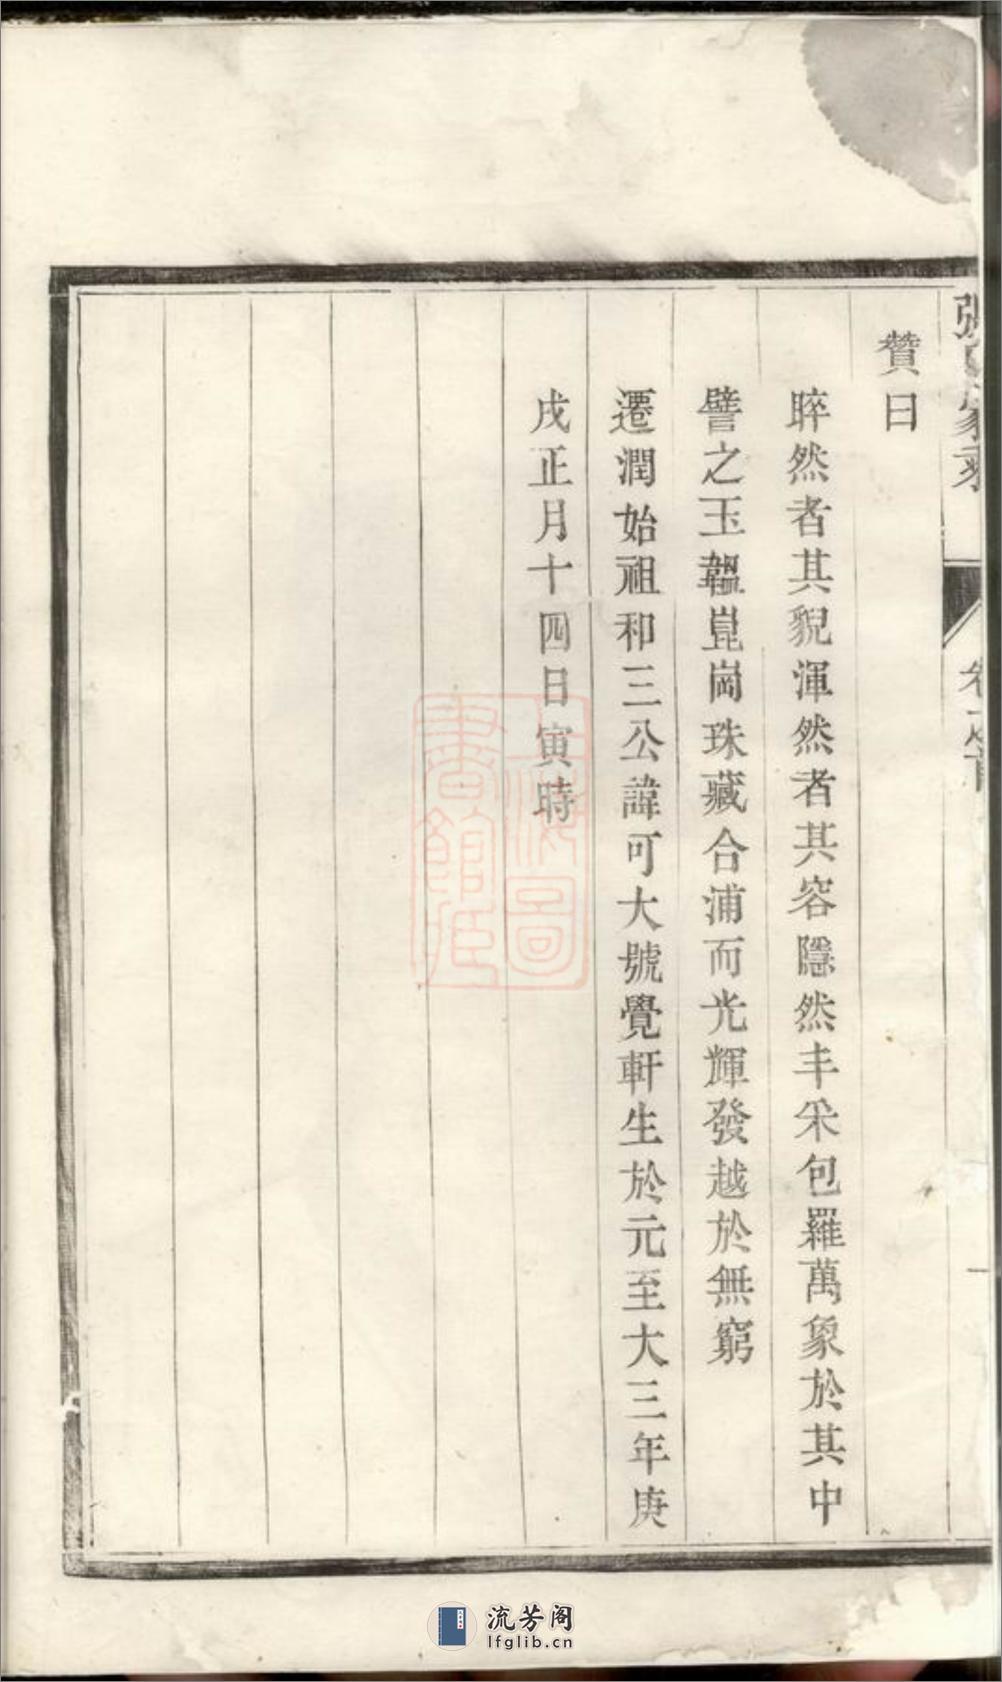 張氏家乘
卷之首
一
贊曰
睟然者其貌渾然者其容隱然丰采包羅萬象於其中
譬之玉韞崑崗珠藏合浦而光輝發越於無窮
遷潤始祖和三公諱可大號覺軒生於元至大三年庚
戌正月十四日寅時
上海圖
書館藏
流芳阁
lfglib.cn